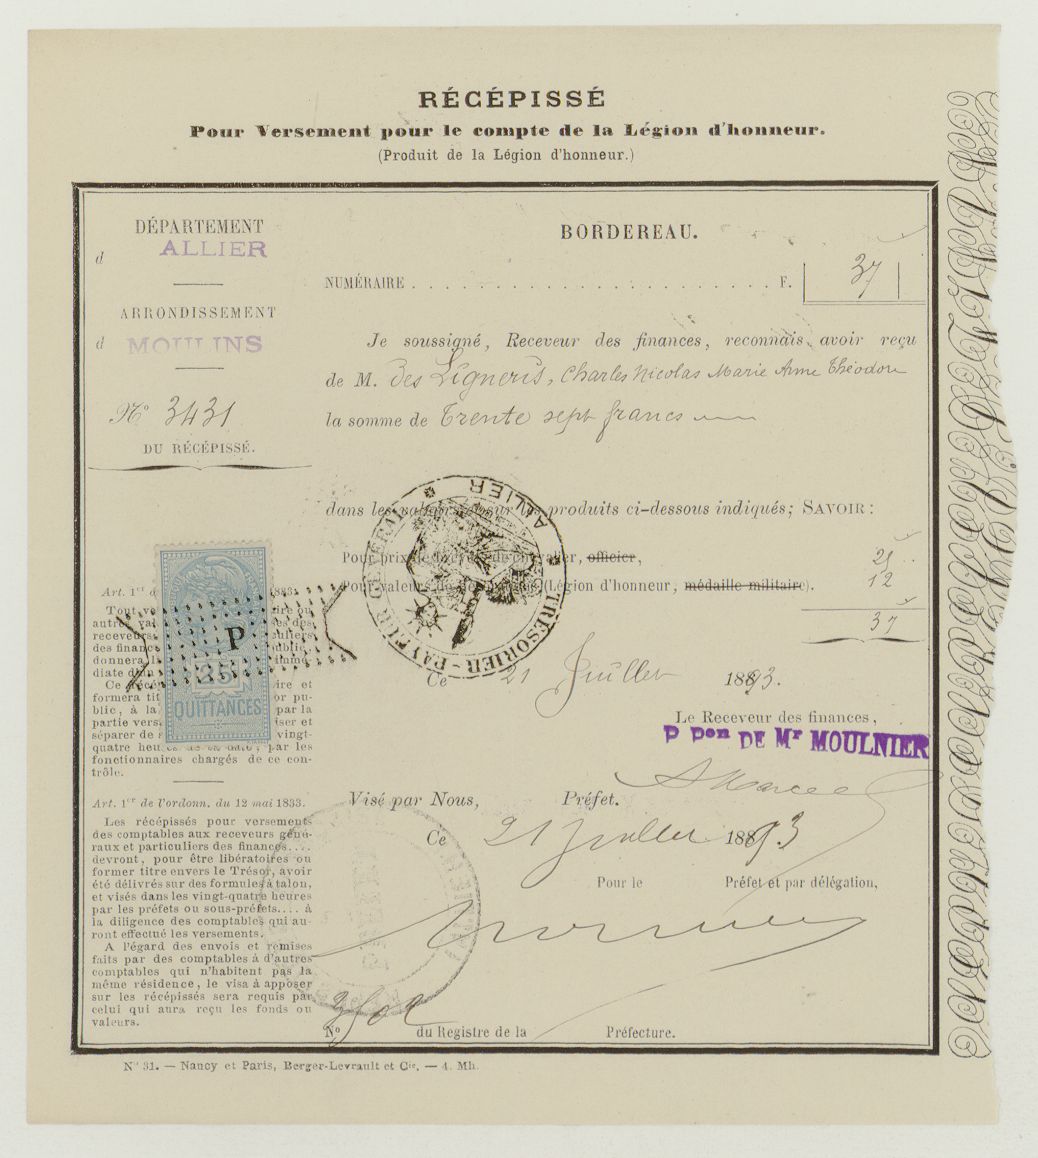 RÉCÉPISSÉ
Pour Versement pour le compte de la Légion d'honneur.
(Produit de la Légion d'honneur.)
DÉPARTEMENT
d ALLIER
ARRONDISSEMENT
d MOULINS
N° 3431
DU RÉCÉPISSÉ.
BORDEREAU.
NUMÉRAIRE . . . . . . . . . . . . . . . . . . . . . . F. 37
Je soussigné, Receveur des finances, reconnais avoir reçu
de M. Des Ligneris, Charles Nicolas Marie Anne Théodore
la somme de Trente sept francs
dans les valeurs et sur les produits ci-dessous indiqués; SAVOIR :
Pour prix de chevalier, officier, 25
Pour valeurs de (Légion d'honneur, médaille militaire). 12
37
TRÉSORIER-PAYEUR GÉNÉRAL
ALLIER
Ce 21 Juillet 1893.
Le Receveur des finances,
P Pon DE Mr MOULNIER
Visé par Nous, Préfet.
Ce 21 Juillet 1893
Pour le Préfet et par délégation,
N° du Registre de la Préfecture.
Art. 1er 1833.
P
25
QUITTANCES
Tout
autres
receveurs
des finances public,
donnera
diate d'un
Ce récé
formera
blic, à la par la
partie
séparer de vingt-
quatre heures de sa date, par les
fonctionnaires chargés de ce con-
trôle.
Art. 1er de l'ordonn. du 12 mai 1833.
Les récépissés pour versements
des comptables aux receveurs géné-
raux et particuliers des finances....
devront, pour être libératoires ou
former titre envers le Trésor, avoir
été délivrés sur des formules à talon,
et visés dans les vingt-quatre heures
par les préfets ou sous-préfets.... à
la diligence des comptables qui au-
ront effectué les versements.
A l'égard des envois et remises
faits par des comptables à d'autres
comptables qui n'habitent pas la
même résidence, le visa à apposer
sur les récépissés sera requis par
celui qui aura reçu les fonds ou
valeurs.
N° 31. — Nancy et Paris, Berger-Levrault et Cie. — 4. Mh.